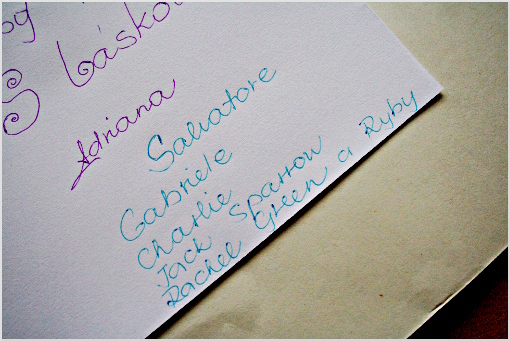 S láskou
Adriana
Salvatore
Gabriele
Charlie
Jack Sparrow
Rachel Green a Ryby